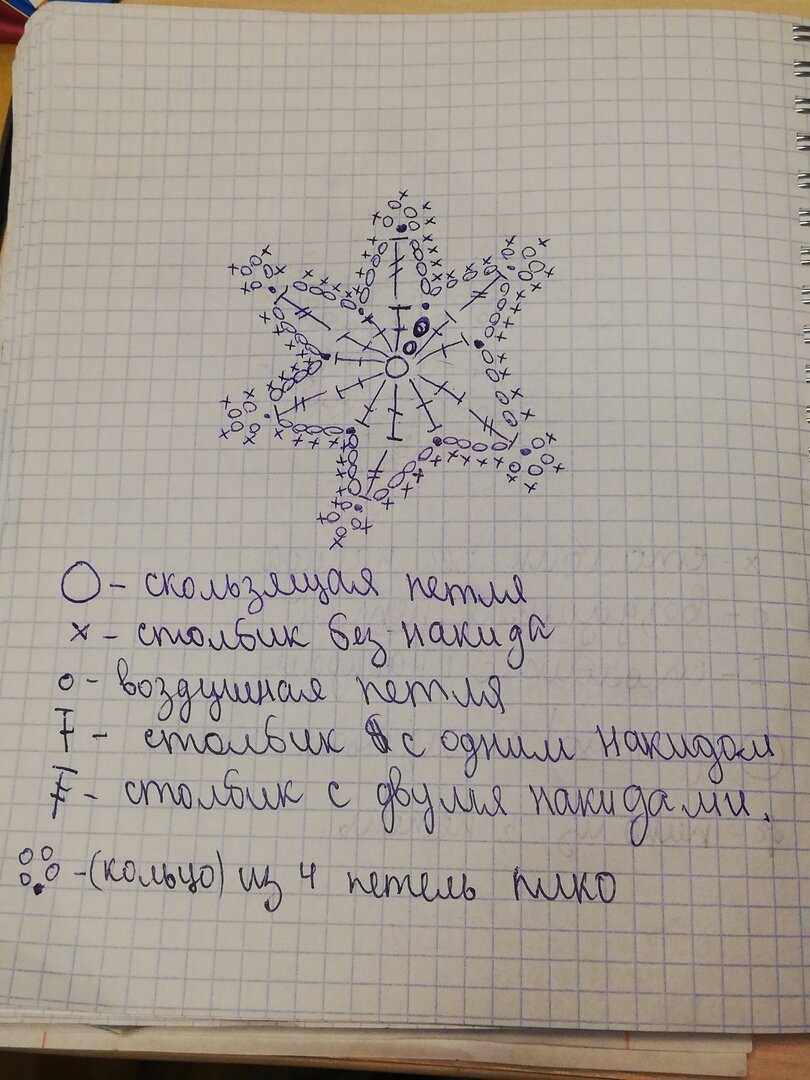 О - скользящая петля
х - столбик без накида
о - воздушная петля
Ŧ - столбик с одним накидом
Ŧ - столбик с двумя накидами.
- (кольцо) из 4 петель пико